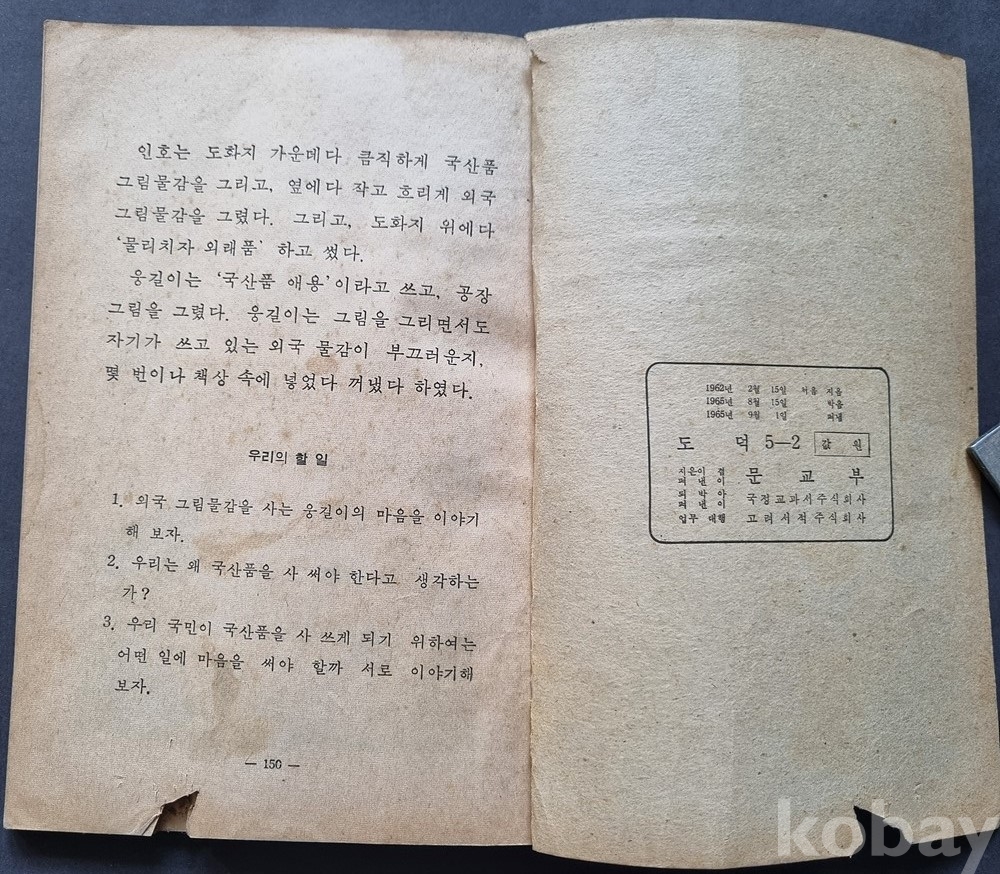 인호는 도화지 가운데다 큼직하게 국산품
그림물감을 그리고, 옆에다 작고 흐리게 외국
그림물감을 그렸다. 그리고, 도화지 위에다
‘물리치자 외래품’ 하고 썼다.
웅길이는 ‘국산품 애용’이라고 쓰고, 공장
그림을 그렸다. 웅길이는 그림을 그리면서도
자기가 쓰고 있는 외국 물감이 부끄러운지,
몇 번이나 책상 속에 넣었다 꺼냈다 하였다.
우리의 할 일
1. 외국 그림물감을 사는 웅길이의 마음을 이야기
해 보자.
2. 우리는 왜 국산품을 사 써야 한다고 생각하는
가?
3. 우리 국민이 국산품을 사 쓰게 되기 위하여는
어떤 일에 마음을 써야 할까 서로 이야기해
보자.
— 150 —
1962년 2월 15일 처음 지음
1965년 8월 15일 박음
1965년 9월 1일 펴냄
도 덕 5—2 값 원
지은이 겸
펴낸이 문 교 부
되 박아
펴낸이 국정교과서주식회사
업무 대행 고려서적주식회사
kobay